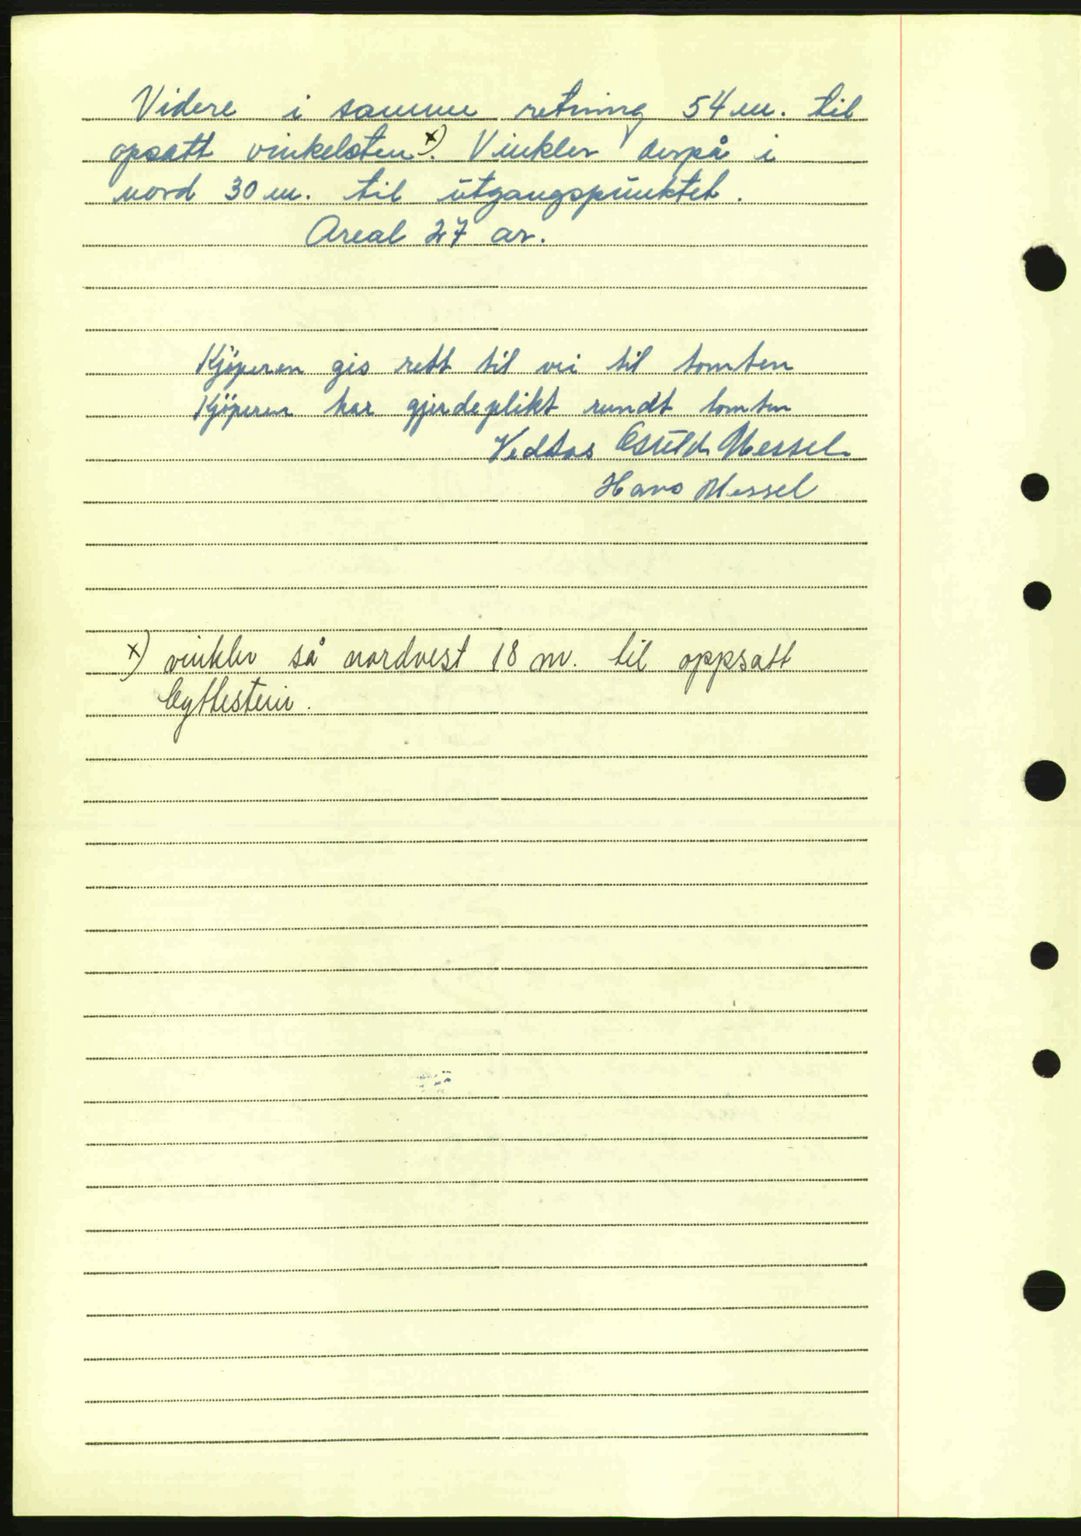 Videre i samme retning 54 m. til
opsatt vinkelsten x). Vinkler derpå i
nord 30 m. til utgangspunktet.
Areal 27 ar.
Kjøperen gis rett til vei til tomten
Kjøperen har gjerdeplikt rundt tomten
Vedtas Messel
Hans Messel
x) vinkler så nordvest 18 m. til oppsatt
byttestein.